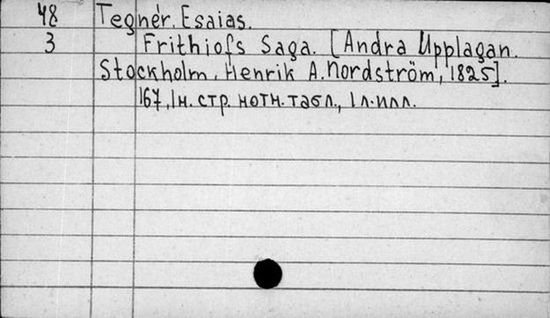 48 Tegnér, Esaias.
3 Frithiofs Saga. [Andra Upplagan.
Stockholm, Henrik A. Nordström, 1825].
167, 1н. стр. нотн. табл., 1 л. илл.